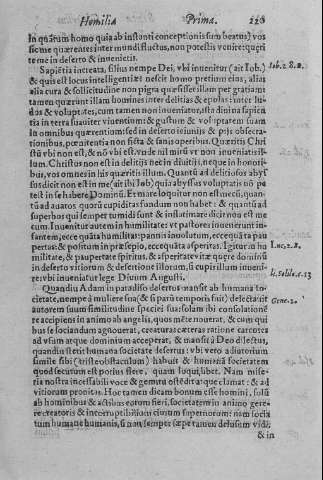 Homilia Prima. 220
In quãtum homo quia ab instanti conceptionis sum beatus) vos
sic me quærentes inter mundi fluctus, non potestis venire: quęri
te me in deserto & invenietis.
Sapiẽtia increata, filius nempe Dei, vbi invenitur (ait Iob.)
& quis est locus intelligentiæ? nescit homo pretium eius, alias
alia cura & sollicitudine non pigra quæsisset illam per gratiam:
tamen quærunt illam homines inter delitias & epulas: inter lu-
dos & voluptates, cum tamen non inveniatur, ista divina sapiẽ
tia in terra suaviter viventium: & gustum & voluptatem suam
In omnibus quærentiom: sed in deserto ieiunijs & pijs obscra-
tionibus, pœnitentia non ficta & sanis operibus. Quæritis Chri
stũ vbi non est, & nõ vbi est. vnde nil mirũ vt non inveniatis il-
lum. Christus non est in delitijs nec in divitijs, neque in honori-
bus, vos omnes in his quæritis illum. Quantũ ad delitiosos abys
sus dicit non est in me (ait ibi Iob) quia abyssus voluptatis nõ po
test in se habere Dominũ. Et mare loquitur non est mecũ, quan-
tũ ad avaros quorũ cupiditas fundum non habet: & quantũ ad
superbos qui semper tumidi sunt & instat mare dicit non est me
cum. Invenitur autem in humilitate: vt pastores invenerunt in-
fantem, ecce quàta humilitas: pannis involutum, ecce quàta pau
pertas: & positum in præsepio, ecce quàta asperitas. Igitur in hu
militate, & paupertate spiritus, & asperitate vitæ quęre dominũ
in deserto vitiorum & desertione illorum, sũ cupis illum inveni-
re: vbi inveniatur lege Divum Augusti.
Quandiu Adam in paradiso desertos mansit ab humana so-
cietate, nempe à muliere sua (& si parũ temporis fuit) delectavit
autorem suum similitudine speciei suæ: solam ibi consolationẽ
re accipiens in animo ab angelis, quos mẽte noverat, & cum qui
bus se sociandum agnouerat, creaturas cæteras ratione carẽtes
ad vsum atque dominium acceperat, & mansit à Deo dilectus,
quandiu stetit humana societate desertus: vbi vero adiutorium
simile sibi (triste obstaculum) habuit & humanã societatem
quod securum est potius flere, quam loqui, libet. Nam mise-
ria nostra in cessabili voce & gemitu ostẽditur quæ clamat: & ad
vitiorum pronitas. Hoc tamen dicam bonum esse homini, solũ
ab hominibus & actibus eorum fieri, societatem in animo gere-
re creatoris & interruptibilium civium supernorum: nam socia
tum humane humanis, sũ non semper sæpe tamen delusum vidi:
& in
Iob. 28.
Luc. 2. B.
Gene. 2.